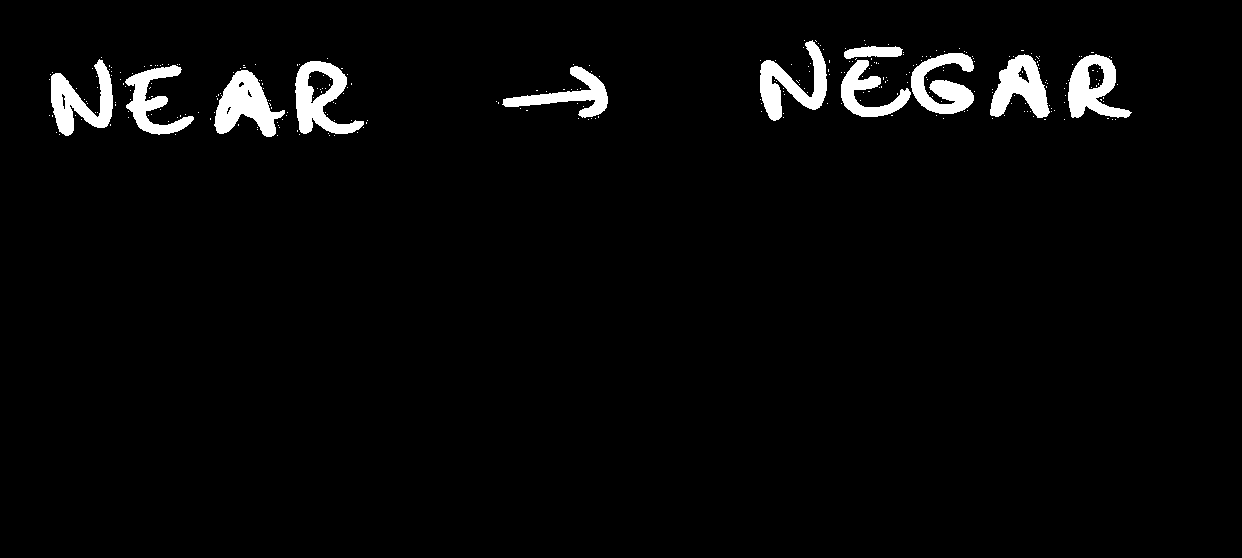 NEAR → NEGAR